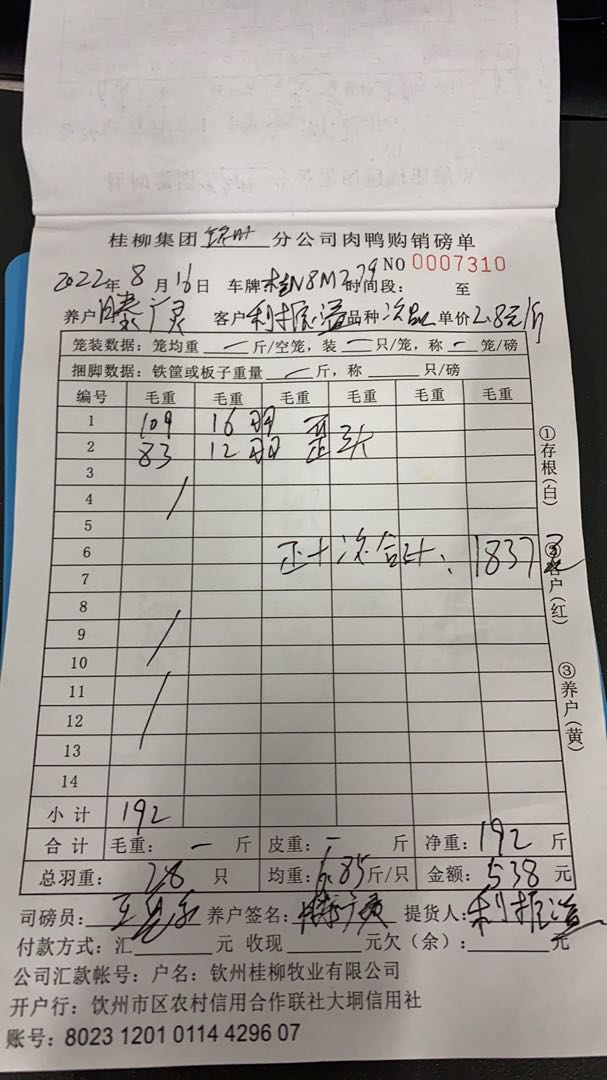 桂柳集团 钦州 分公司肉鸭购销磅单
NO 0007310
2022年 8 月 16 日 车牌 桂N8M279 时间段: 至
养户 滕广灵 客户 利振溢 品种 次品 单价 2.8元/斤
笼装数据:笼均重 一 斤/空笼,装 一 只/笼,称 一 笼/磅
捆脚数据:铁筐或板子重量 一 斤,称 只/磅
编号 毛重 毛重 毛重 毛重 毛重 毛重
1 109 16羽 歪
2 83 12羽 歪头
3
4
5
6 正+次合计: 1837
7
8
9
10
11
12
13
14
小计 192
合计 毛重: 一 斤 皮重: 一 斤 净重: 192 斤
总羽重: 28 只 均重: 6.85 斤/只 金额: 538 元
司磅员: 养户签名: 滕广灵 提货人: 利振溢
付款方式:汇 元 收现 元欠(余): 元
公司汇款帐号:户名:钦州桂柳牧业有限公司
开户行:饮州市区农村信用合作联社大垌信用社
账号:8023 1201 0114 4296 07
①存根(白)
②客户(红)
③养户(黄)